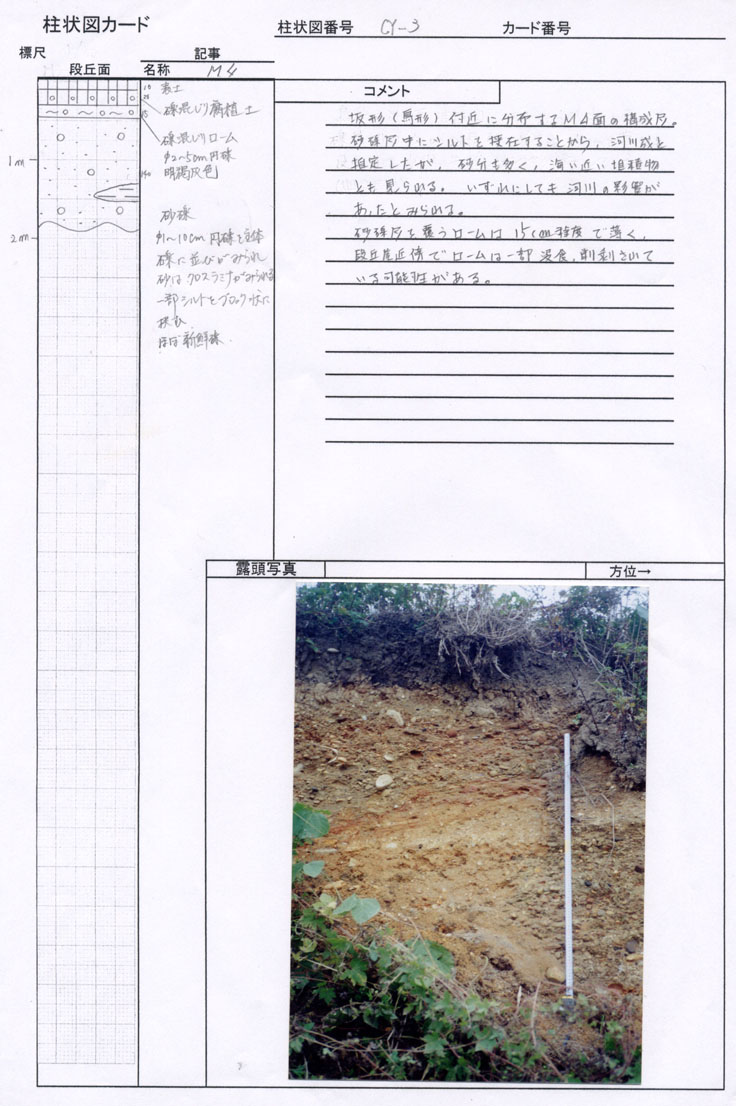 柱状図カード
柱状図番号 CY-3 カード番号
標尺
記事
段丘面
名称 M4
10 表土
礫混じり腐植土
礫混じりローム
φ2~5cm円礫
明褐灰色
1m
2m
砂礫
φ1~10cm円礫を主体
礫に並びがみられ
砂はクロスラミナがみられる
一部シルトをブロック状に
挟む
ほぼ新鮮礫
コメント
坂形(馬形)付近に分布するM4面の構成層。
砂礫層中にシルトを挟在することから、河川成と
推定したが、砂分も多く、海に近い堆積物
とも見られる。いずれにしても河川の影響が
あったとみられる。
砂礫層を覆うロームは15cm程度で薄く、
段丘崖近傍でロームは一部浸食、削剥されて
いる可能性がある。
露頭写真
方位→